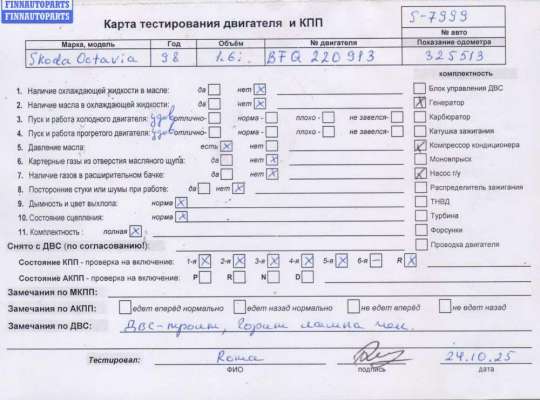 FINNAUTOPARTS
FINNAUTOPARTS
Карта тестирования двигателя и КПП
S-7999
№ авто
Марка, модель Год Объём № двигателя Показание одометра
Skoda Octavia 98 1.6i BFQ 220913 325513
комплектность
1. Наличие охлаждающей жидкости в масле: да нет
2. Наличие масла в охлаждающей жидкости: да нет
3. Пуск и работа холодного двигателя: удов отлично- норма - плохо - не завелся-
4. Пуск и работа прогретого двигателя: удов отлично- норма - плохо - не завелся-
5. Давление масла: есть нет
6. Картерные газы из отверстия масляного щупа: да нет
7. Наличие газов в расширительном бачке: да нет
8. Посторонние стуки или шумы при работе: да нет
9. Дымность и цвет выхлопа: норма
10. Состояние сцепления: норма
11. Комплектность : полная
Блок управления ДВС
Генератор
Карбюратор
Катушка зажигания
Компрессор кондиционера
Моновпрыск
Насос г/у
Распределитель зажигания
ТНВД
Турбина
Форсунки
Проводка двигателя
Снято с ДВС (по согласованию!):
Состояние КПП - проверка на включение: 1-я 2-я 3-я 4-я 5-я 6-я R
Состояние АКПП - проверка на включение: P R N D
Замечания по МКПП:
Замечания по АКПП: едет вперёд нормально едет назад нормально не едет вперёд не едет назад
Замечания по ДВС: ДВС-троит, горит лампа чек.
Тестировал: Rома 24.10.25
ФИО подпись дата